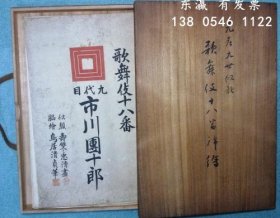 有发票
138 0546 1122
歌舞伎十八番
九代目
市川團十郎
似顔 忠清畫
脇繪 鳥居清貞筆
歌舞伎十八番